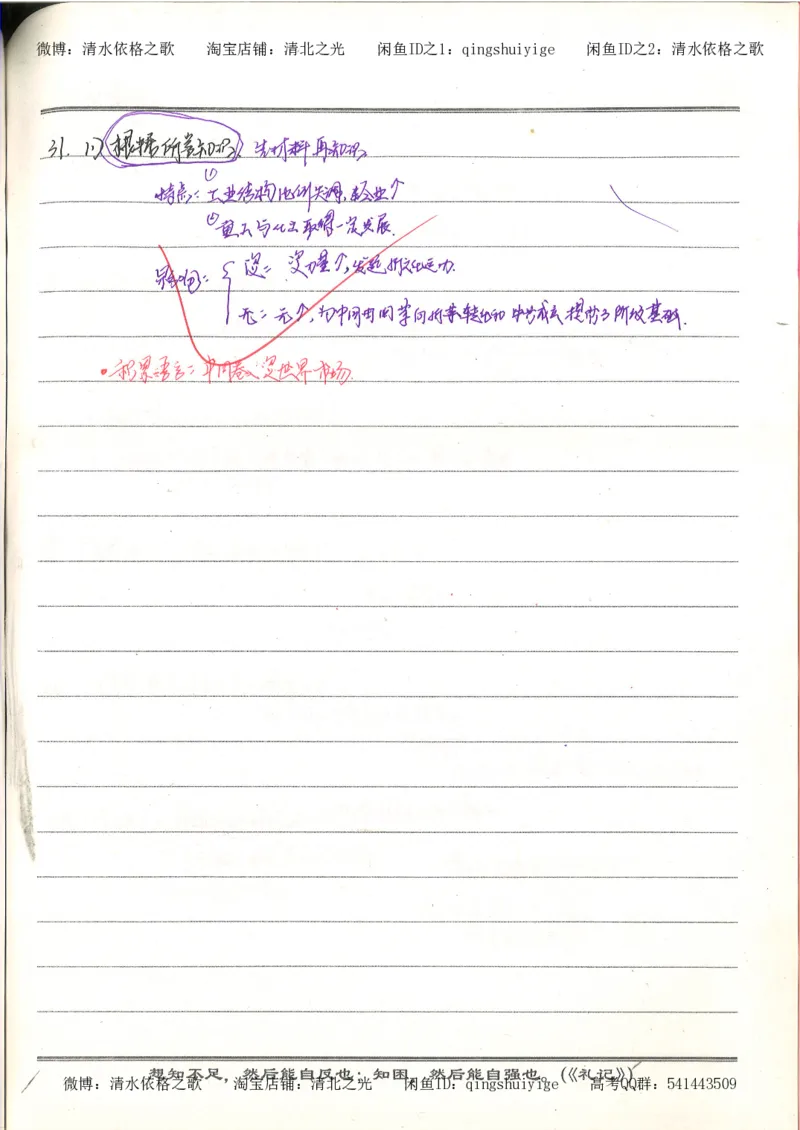 微博：清水依格之歌 淘宝店铺：清北之光 闲鱼ID之1：qingshuiyige 闲鱼ID之2：清水依格之歌
31. (1) 根据所学知识, 先材料再知识
特点：①工业结构比例失调, 轻工业↑
②重工与化工取得一定发展.
影响： 资：资力量↑, 发起新文化运动.
无：无↑, 为中国由旧革向新革转化和中共成立提供了阶级基础.
•积累语言：中国卷入资世界市场.
想知不足，然后能自反也；知困，然后能自强也。(《礼记》)
微博：清水依格之歌 淘宝店铺：清北之光 闲鱼ID：qingshuiyige 高考QQ群：541443509